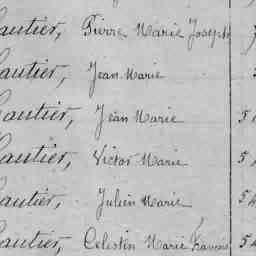 Gautier, Pierre Marie Joseph
Gautier, Jean Marie
Gautier, Jean Marie
Gautier, Victor Marie
Gautier, Julien Marie
Gautier, Célestin Marie François